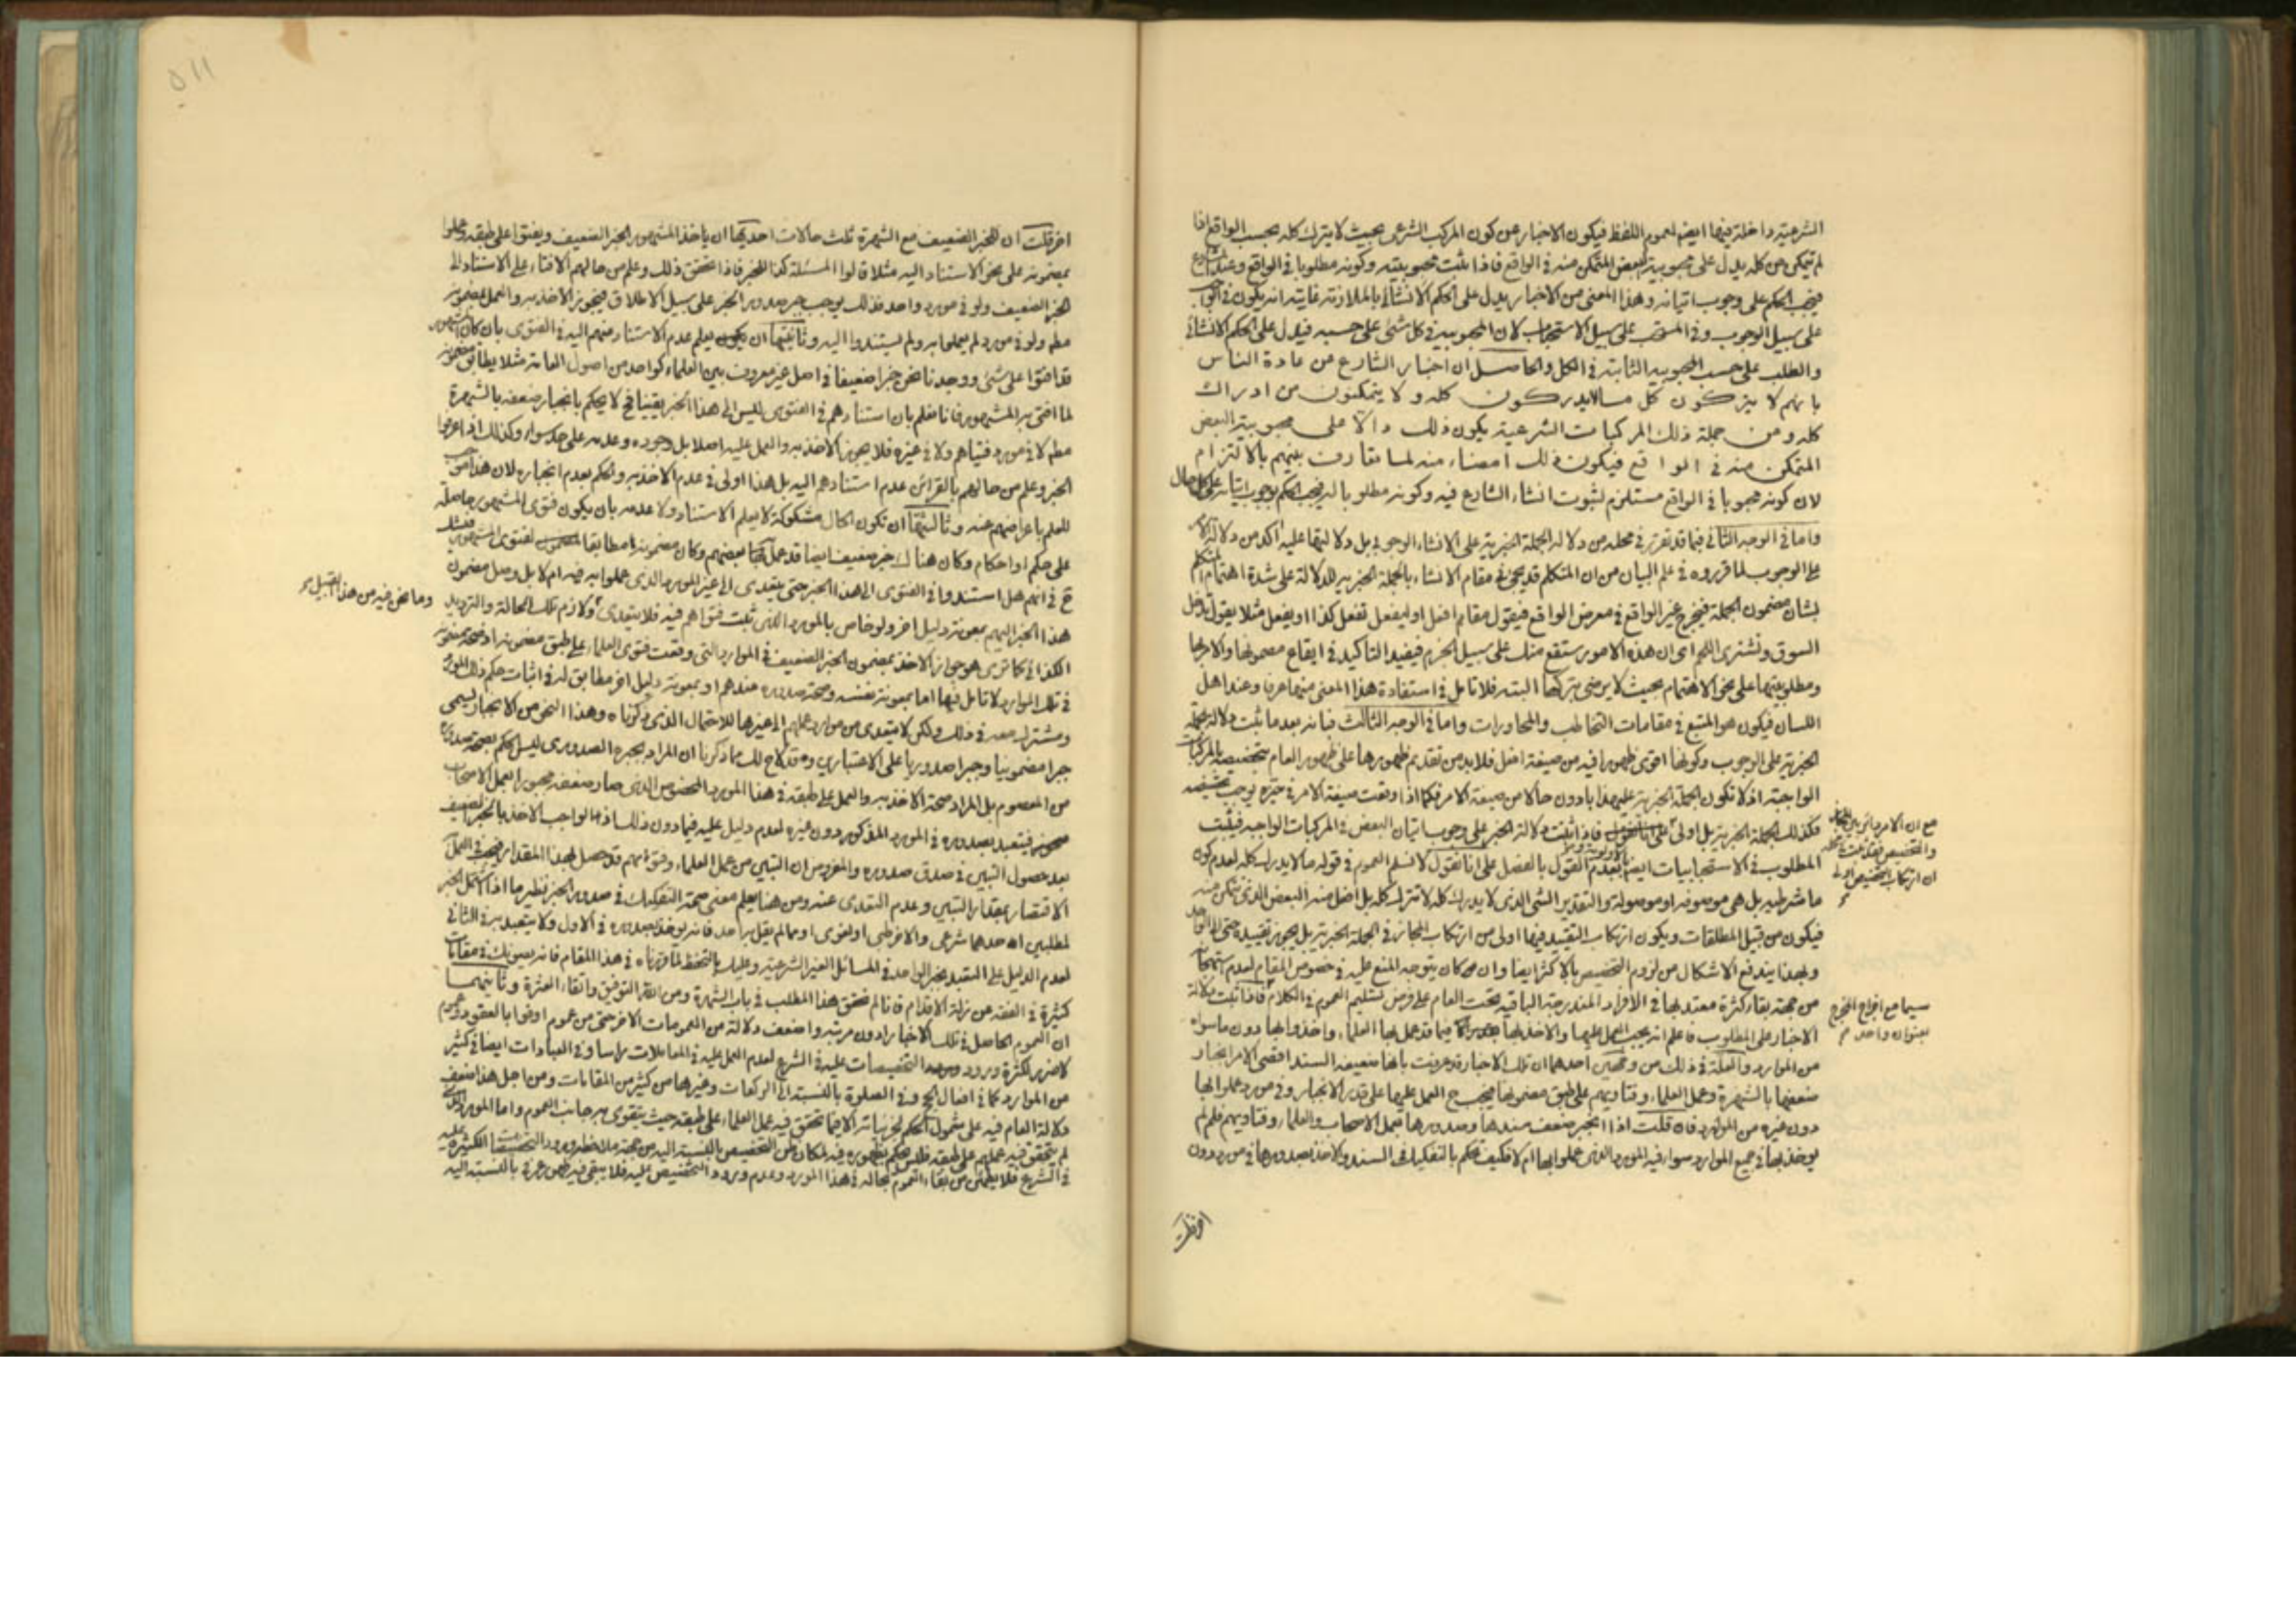 الشرعية داخلة فيها ايضا لعموم اللفظ فيكون الاخبار عن كون المركب الشرعى بحيث لا يترك كله بحسب الواقع اذا
لم يتمكن من كله يدل على محبوبية البعض المتمكن منه فى الواقع فاذا ثبت محبوبيته وكونه مطلوبا فى الواقع وعند الشارع
فيجب الحكم على وجوب اتيانه وهذا المعنى من الاخبار يدل على الحكم الانشائى بالملازمة غايته انه يكون فى الواجب
على سبيل الوجوب وفى المستحب على سبيل الاستحباب لان المحبوبية فى كل شئ على حسبه فيدل على الحكم الانشائى
والطلب على حسب المحبوبية الثابتة فى الكل والحاصل ان اخبار الشارع من عادة الناس
بانهم لا يتركون كل ما لا يدركون كله و لا يتمكنون من ادراك
كله ومن جملة ذلك المركبات الشرعية يكون ذلك دالا على محبوبية البعض
المتمكن منه فى الواقع فيكون ذلك امضاء منه لما تعارف بينهم بالالتزام
لان كونه محبوبا فى الواقع مستلزم لثبوت انشاء الشارع فيه وكونه مطلوبا له فيجب الحكم بوجوب اتيانه على كل حال
واما فى الوجه الثانى فبما قد تقرر فى محله من دلالة الجملة الخبرية على الانشاء الوجوبى بل دلالتها عليه اكد من دلالة الامر
على الوجوب لما قرروه فى علم البيان من ان المتكلم قد يجئ فى مقام الانشاء بالجملة الخبرية للدلالة على شدة اهتمام المتكلم
بشان مضمون الجملة فيخرج غير الواقع فى معرض الواقع فيقول مقام افعل او ليفعل تفعل كذا او يفعل مثلا يقول تدخل
السوق وتشترى اللحم اى ان هذه الامور ستقع منك على سبيل الجزم فيفيد التاكيد فى ايقاع مضمونها والامر بها
ومطلوبيتها على نحو الاهتمام بحيث لا يرضى بتركها البتة فلا تامل فى استفادة هذا المعنى منها عرفا وعند اهل
اللسان فيكون هو المتبع فى مقامات التخاطب والمحاورات واما فى الوجه الثالث فبانه بعد ما ثبت دلالة الجملة
الخبرية على الوجوب وكونها اقوى ظهورا فيه من صيغة افعل فلا بد من تقديم ظهورها على ظهور العام بتخصيصه بالمركبات
الواجبة اذ لا تكون الجملة الخبرية عليهذا بادون حالا من صيغة الامر فكما اذا وقعت صيغة الامر فى حيزه يوجب تخصيصه
فكذلك الجملة الخبرية بل اولى فاذا ثبت دلالة الخبر على وجوب اتيان البعض فى المركبات الواجبة فيثبت
المطلوب فى الاستحبابيات ايضا بعدم القول بالفصل على انا نقول لا نسلم العموم فى قوله ما لا يدرك كله لعدم كون
ما شرطية بل هى موصوفة او موصولة والتقدير الشئ الذى لا يدرك كله لا تترك كله بل افعل منه البعض الذى يتمكن منه
فيكون من قبيل المطلقات ويكون ارتكاب التقييد فيها اولى من ارتكاب المجاز فى الجملة الخبرية بل يجوز تقييده حتى الى الواحد
وبهذا يندفع الاشكال من لزوم التخصيص بالاكثر ايضا وان كان يتوجه المنع عليه فى خصوص المقام لعدم استهجانه
من جهة بقاء كثرة معتد بها فى الافراد المندرجة الباقية تحت العام على فرض تسليم العموم فى الكلام فاذا ثبت دلالة
الاخبار على المطلوب فاعلم انه يجب العمل عليها والاخذ بها فيما قد عمل بها العلماء واخذوا بها دون ما سواه
من الموارد والعلة فى ذلك من وجهين احدهما ان تلك الاخبار قد عرفت بانها ضعيفة السند اقتضى الامر انجبار
ضعفها بالشهرة وعمل العلماء وفتاويهم على طبق مضمونها فيجب ح العمل عليها على قدر الانجبار وفى مورد عملوا بها
دون غيره من الموارد فان قلت اذا انجبر ضعف سندها وصدورها بعمل الاصحاب والعلماء وفتاويهم فلم لم
يوخذ بها فى جميع الموارد سواء فيه المورد الذى عملوا بها ام لا فكيف نحكم بالتفكيك فى السند والاخذ بصدورها فى مورد دون
اخر قلت
مع ان الامر دائر بين المجاز
والتخصيص فقد ثبت فى محله
ان ارتكاب التخصيص اولى
سيما مع اخراج المخرج
بعنوان واحد
٥١١
اخر قلت ان للخبر الضعيف مع الشهرة ثلث حالات احديها ان ياخذ المشهور الخبر الضعيف ويفتوا على طبقه وعملوا
بمضمونه على نحو الاستناد اليه مثلا قالوا المسئلة كذا للخبر فاذا تحقق ذلك وعلم من حالهم الافتاء على الاستناد الى
الخبر الضعيف ولو فى مورد واحد فذلك يوجب جبر صدور الخبر على سبيل الاطلاق فيجوز الاخذ به والعمل بمضمونه
مطه ولو فى مورد لم يعملوا به ولم يستندوا اليه وثانيتها ان يعلم عدم الاستناد منهم اليه فى الفتوى بان كان المشهور
قد افتوا على شئ ووجدنا نحن خبرا ضعيفا فى اصل غير معروف بين العلماء كواحد من اصول العامة مثلا يطابق مضمونه
لما افتى به المشهور فانا نعلم بان استنادهم فى الفتوى ليس الى هذا الخبر يقينا فح لا يحكم بانجبار ضعفه بالشهرة
مطه لا فى مورد فتياهم ولا فى غيره فلا يجوز الاخذ به والعمل عليه اصلا بل وجوده وعدمه على حد سواء وكذلك اذا اعرضوا
الخبر وعلم من حالهم بالقرائن عدم استنادهم اليه بل هذا اولى فى عدم الاخذ به والحكم بعدم انجباره لان هذا موجب
للعلم باعراضهم عنه وثالثتها ان تكون الحال مشكوكة لا يعلم الاستناد ولا عدمه بان يكون فتوى المشهور حاصلة
على حكم او احكام وكان هناك خبر ضعيف ايضا قد عمل بعضهم وكان مضمونه مطابقا لفتوى المشهور فنشك
ح فى انهم هل استندوا فى الفتوى الى هذا الخبر حتى يتعدى الى غير المورد الذى عملوا به فيه ام لا بل وصل مضمون
هذا الخبر اليهم بمعونة دليل اخر ولو خاص بالمورد الذى ثبت فتواهم فيه فلا يتعدى ولازم تلك الحالة والترديد
الكذائى كما ترى هو جواز الاخذ بمضمون الخبر الضعيف فى الموارد التى وقعت فتوى العلماء على طبق مضمونه
فى تلك الموارد لا تامل فيها اما بمعونة نفسه وصحة صدوره عندهم او بمعونة دليل اخر مطابق له فى اثبات حكم ذلك المورد
ومشترك معه فى ذلك ولكن لا يتعدى من موارد عملهم الى غيرها للاحتمال الذى ذكرناه وهذا النحو من الانجبار يسمى
جبرا مضمونيا وجبرا صدوريا على الاعتبارين وقد لاح لك مما ذكرنا ان المراد بجبره الصدورى ليس الحكم بصحة صدوره
من المعصوم بل المراد صحة الاخذ به والعمل على طبقه فى هذا المورد المخصوص الذى صار ضعفه مجبورا بعمل الاصحاب
فيتعبد بصدوره فى المورد المذكور دون غيره لعدم دليل عليه فيما دون ذلك اذ الواجب الاخذ بالخبر الضعيف
بعد حصول التبين فى صدق صدوره والمفروض ان التبين من عمل العلماء وفتواهم قد حصل بهذا المقدار فيجب فى العمل
الاقتصار بمقدار التبين وعدم التعدى عنه ومن هنا يعلم معنى صحة التفكيك فى صدور الخبر نظير ما اذا اشتمل الخبر
لمطلبين احدهما شرعى والاخر طبى او لغوى او مما لم يقل به احد فانه يوخذ بصدوره فى الاول ولا يتعبد به فى الثانى
لعدم الدليل على التعبد بخبر الواحد فى المسائل الغير الشرعية وعليك بالتحفظ لما قررناه فى هذا المقام فانه يعينك فى مقامات
كثيرة فى الفقه عن زلة الاقدام فانا لم نحقق هذا المطلب فى باب الشهرة ومن الله التوفيق واتقاء العثرة وثانيهما
ان العموم الحاصل فى تلك الاخبار ادون مرتبة واضعف دلالة من العمومات الاخر حتى من عموم اوفوا بالعقود وعموم
لا ضرر لكثرة ورود التخصيصات عليه فى الشرع لعدم العمل عليه فى المعاملات راسا وفى العبادات ايضا فى كثير
من الموارد كما فى افعال الحج وفى الصلوة بالنسبة الى الركعات وغيرها من كثير من المقامات ومن اجل هذا ضعف
دلالة العام فيه على شمول الحكم لجزئياته الا فيما تحقق فيه عمل العلماء على طبقه حيث يتقوى به جانب العموم واما المورد الذى
لم يتحقق فيه عملهم على طبقه فلا يحكم بظهوره فيه لمكان وهن التخصيص بالنسبة اليه من جهة ملاحظة ورود التخصيصات الكثيرة عليه
فى الشرع فلا يطمئن من بقاء العموم بحاله فى هذا المورد وعدم ورود التخصيص عليه فلا يبقى فيه ظهور عرفا بالنسبة اليه
وما نحن فيه من هذا القبيل